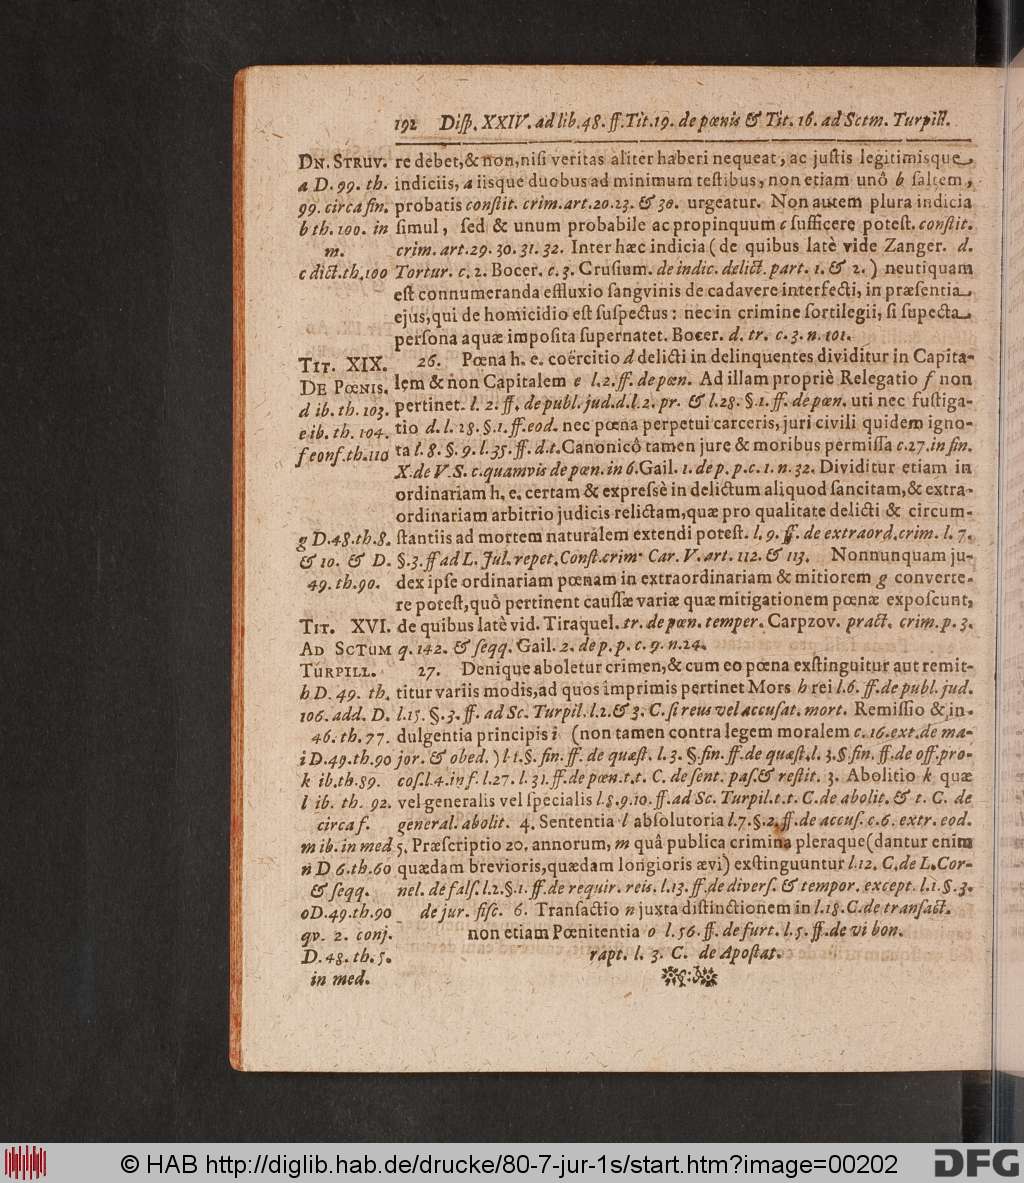 192 Disp. XXIV. ad lib. 48. ff. Tit. 19. de pœnis & Tit. 16. ad Sctm. Turpill.
DN. STRUV.
a D. 99. th.
99. circa fin.
b th. 100. in
m.
c dict. th. 100
re debet, & non, nisi veritas aliter haberi nequeat, ac justis legitimisque
indiciis, a iisque duobus ad minimum testibus, non etiam unô b saltem,
probatis constit. crim. art. 20. 23. & 30. urgeatur. Non autem plura indicia
simul, sed & unum probabile ac propinquum c sufficere potest. constit.
crim. art. 29. 30. 31. 32. Inter hæc indicia (de quibus latè vide Zanger. d.
Tortur. c. 2. Bocer. c. 3. Crusium. de indic. delict. part. 1. & 2.) neutiquam
est connumeranda effluxio sangvinis de cadavere interfecti, in præsentia
ejus, qui de homicidio est suspectus: nec in crimine sortilegii, si supecta
persona aquæ imposita supernatet. Bocer. d. tr. c. 3. n. 101.
TIT. XIX.
DE PŒNIS.
d ib. th. 103.
e ib. th. 104.
f eonf. th. 110
26. Pœna h. e. coërcitio d delicti in delinquentes dividitur in Capita-
lem & non Capitalem e l. 2. ff. de pœn. Ad illam propriè Relegatio f non
pertinet. l. 2. ff. de publ. jud. d. l. 2. pr. & l. 28. §. 1. ff. de pœn. uti nec fustiga-
tio d. l. 28. §. 1. ff. eod. nec pœna perpetui carceris, juri civili quidem igno-
ta l. 8. §. 9. l. 35. ff. d. t. Canonicô tamen jure & moribus permissa c. 27. in fin.
X. de V. S. c. quamvis de pœn. in 6. Gail. 1. de p. p. c. 1. n. 32. Dividitur etiam in
ordinariam h. e. certam & expressè in delictum aliquod sancitam, & extra-
ordinariam arbitrio judicis relictam, quæ pro qualitate delicti & circum-
g D. 48. th. 8.
& 10. & D.
49. th. 90.
stantiis ad mortem naturalem extendi potest. l. 9. ff. de extraord. crim. l. 7.
§. 3. ff ad L. Jul. repet. Const. crim. Car. V. art. 112. & 113. Nonnunquam ju-
dex ipse ordinariam pœnam in extraordinariam & mitiorem g converte-
re potest, quò pertinent caussæ variæ quæ mitigationem pœnæ exposcunt,
de quibus latè vid. Tiraquel. tr. de pœn. temper. Carpzov. pract. crim. p. 3.
q. 142. & seqq. Gail. 2. de p. p. c. 9. n. 24.
TIT. XVI.
AD SCTUM
TURPILL.
h D. 49. th.
106. add. D.
46. th. 77.
i D. 49. th. 90
k ib. th. 89.
l ib. th. 92.
circa f.
m ib. in med
n D 6. th. 60
& seqq.
o D. 49. th. 90
qv. 2. conj.
D. 48. th. 5.
in med.
27. Denique aboletur crimen, & cum eo pœna exstinguitur aut remit-
titur variis modis, ad quos imprimis pertinet Mors h rei l. 6. ff. de publ. jud.
l. 15. §. 3. ff. ad Sc. Turpil. l. 2. & 3. C. si reus vel accusat. mort. Remissio & in-
dulgentia principis i (non tamen contra legem moralem c. 16. ext. de ma-
jor. & obed.) l 1. §. fin. ff. de quæst. l. 3. §. fin. ff. de quæst. l. 3. §. fin. ff. de off. pro-
cos. l. 4. in f. l. 27. l. 31. ff. de pœn. t. t. C. de sent. pas. & restit. 3. Abolitio k quæ
vel generalis vel specialis l. 8. 9. 10. ff. ad Sc. Turpil. t. t. C. de abolit. & t. C. de
general. abolit. 4. Sententia l absolutoria l. 7. §. 2. ff. de accus. c. 6. extr. eod.
5. Præscriptio 20. annorum, m quâ publica crimina pleraque (dantur enim
quædam brevioris, quædam longioris ævi) exstinguuntur l. 12. C. de L. Cor-
nel. de fals. l. 2. §. 1. ff. de requir. reis. l. 13. ff. de divers. & tempor. except. l. 1. §. 3.
de jur. fisc. 6. Transactio n juxta distinctionem in l. 18. C. de transact.
non etiam Pœnitentia o l. 56. ff. de furt. l. 5. ff. de vi bon.
rapt. l. 3. C. de Apostat.
© HAB http://diglib.hab.de/drucke/80-7-jur-1s/start.htm?image=00202
DFG